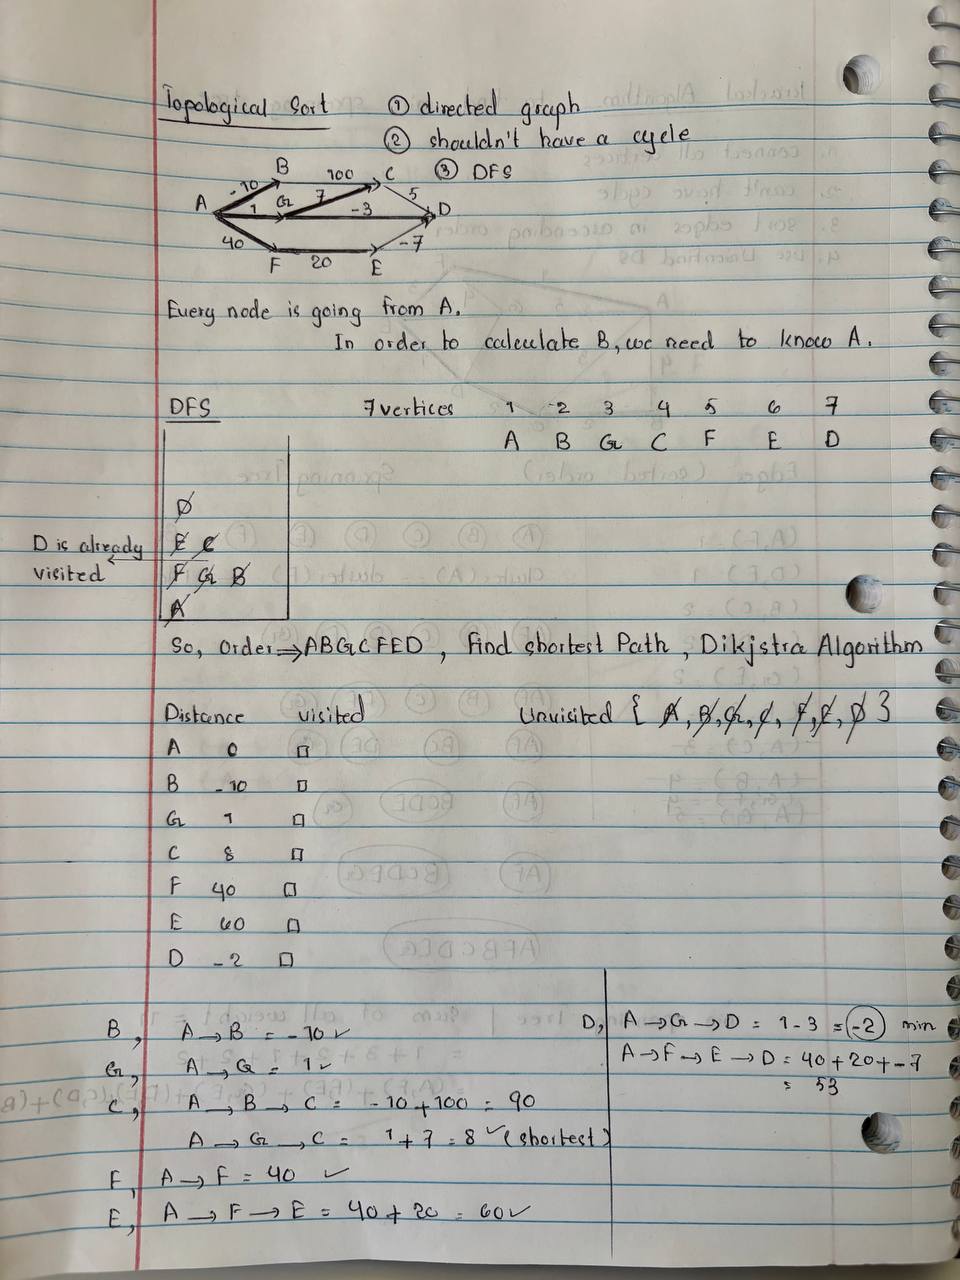 Topological Sort ① directed graph
② shouldn't have a cycle
③ DFS
B 100 C
-10 7 5
A 1 G -3 D
40 -7
F 20 E
Every node is going from A.
In order to calculate B, we need to know A.
DFS 7 vertices 1 2 3 4 5 6 7
A B G C F E D
D
E C
F G B
A
D is already
visited
So, Order⇒ABGCFED, Find shortest Path, Dikjstra Algorithm
Distance visited Unvisited { A, B, G, C, F, E, D }
A 0
B -10
G 1
C 8
F 40
E 60
D -2
B, A→B = -10 ✓
G, A→G = 1 ✓
C, A→B→C = -10+100 = 90
A→G→C = 1+7 = 8 ✓ (shortest)
F, A→F = 40 ✓
E, A→F→E = 40+20 = 60 ✓
D, A→G→D = 1-3 = -2 min
A→F→E→D = 40+20+-7
= 53